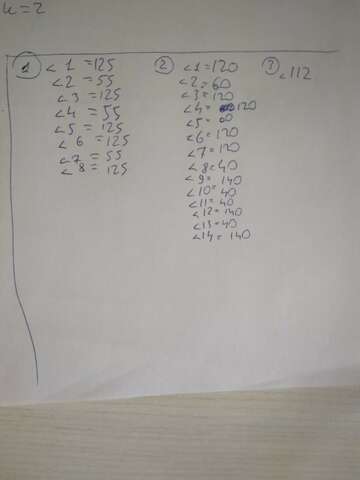 k=2
① <1 =125
<2 = 55
<3 = 125
<4 = 55
<5 = 125
<6 = 125
<7 = 55
<8 = 125
② <1 = 120
<2 = 60
<3 = 120
<4 = 120
<5=
<6 = 120
<7 = 120
<8 = 40
<9 = 140
<10 = 40
<11 = 40
<12 = 140
<13 = 40
<14 = 140
③ <112